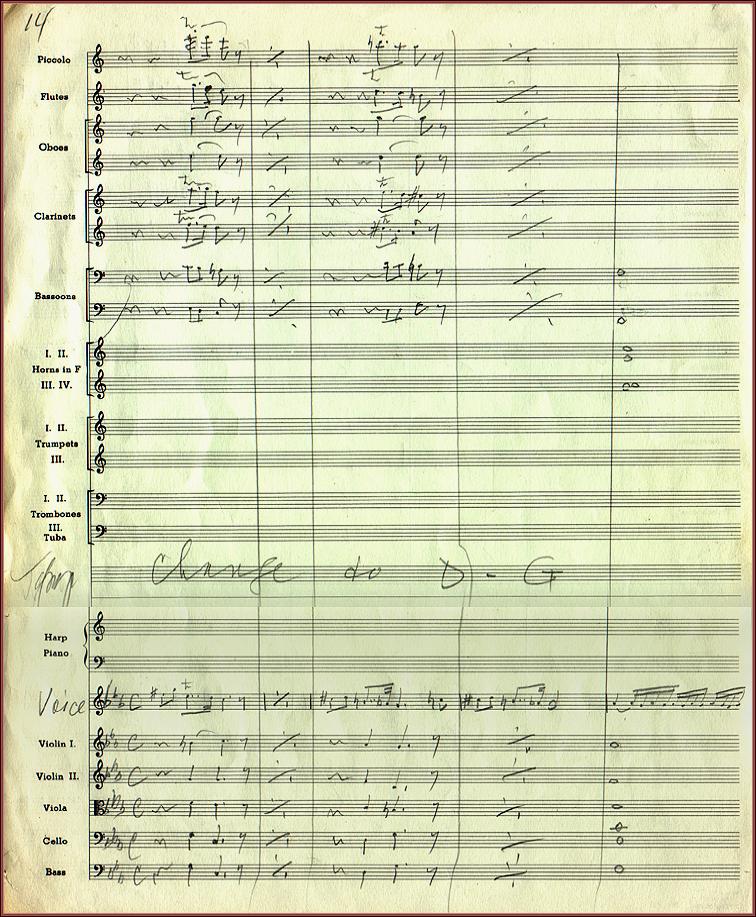 14
Piccolo
Flutes
Oboes
Clarinets
Bassoons
I. II.
Horns in F
III. IV.
I. II.
Trumpets
III.
I. II.
Trombones
III.
Tuba
Change to D - G
Harp
Piano
Voice
Violin I.
Violin II.
Viola
Cello
Bass